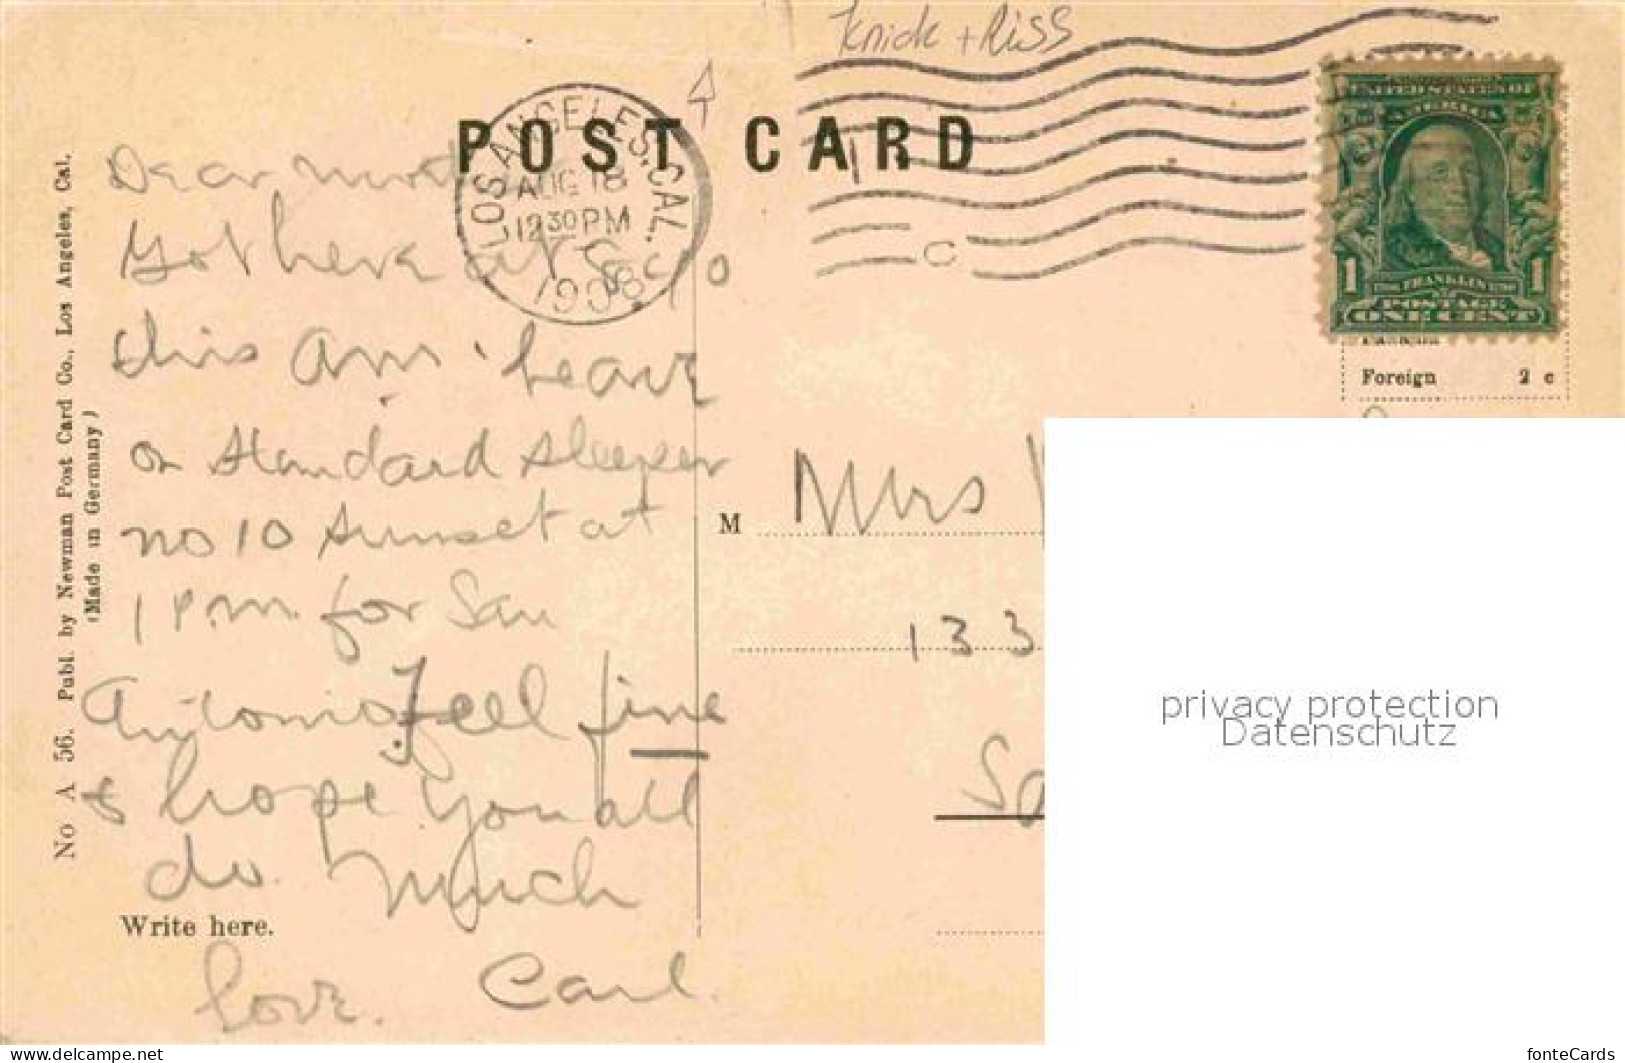 Knick + Riss
POST CARD
LOS ANGELES, CAL.
AUG 18
12 30 PM
1908
C
UNITED STATES OF
AMERICA
1 FRANKLIN 1
POSTAGE
ONE CENT
Foreign 2 c
No A 56. Publ. by Newman Post Card Co., Los Angeles, Cal.
(Made in Germany)
Dear
Got here at
this am. Leave
on standard sleeper
no 10 Sunset at
1 P.m. for San
Antonio. Feel fine
& hope you all
do. Much
love. Carl.
Write here.
M Mrs
133
privacy protection
Datenschutz
www.delcampe.net
fonteCards